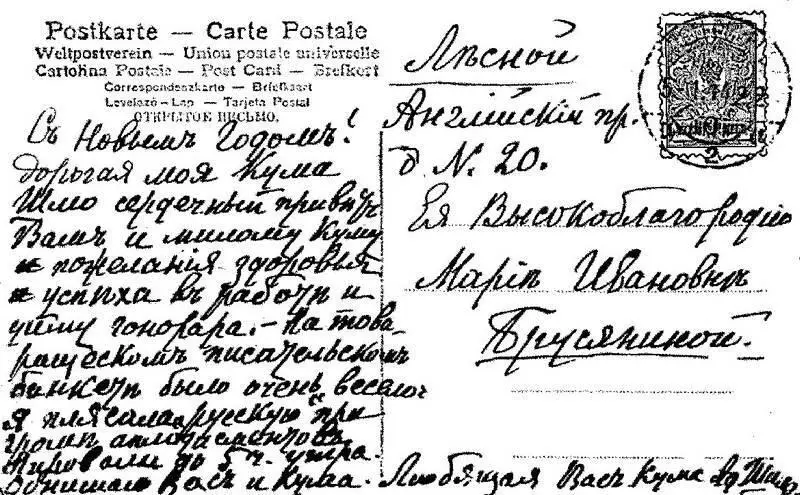 Postkarte — Carte Postale
Weltpostverein — Union postale universelle
Cartolina Postale — Post Card — Brefkort
Correspondenzkarte — Briefkaart
Levelező-Lap — Tarjeta Postal
ОТКРЫТОЕ ПИСЬМО.
Съ Новымъ Годомъ!
дорогая моя Кума
Шлю сердечный привѣтъ
Вамъ и милому Куму
и пожеланія здоровья
и успѣха въ работѣ и
гонорара. — На това-
рищескомъ писательскомъ
банкетѣ было очень весело
Я плясала русскую при
громѣ апплодисментовъ
до 5 ч. утра.
Обнимаю Васъ и Кума. Любящая Васъ Кума
Лѣсной
Англійскій пр.
д N. 20.
Ея Высокоблагородію
Маріи Ивановнѣ
Брусяниной.